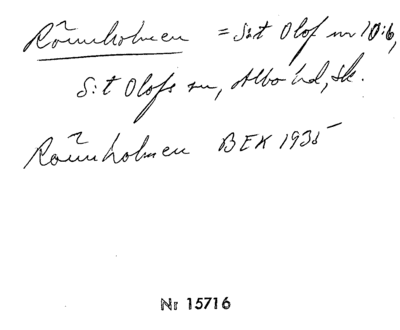 Rönnholmen = S:t Olof nr 10:6,
S:t Olofs sn, Albo hd, Sk.
Rönnholmen BEK 1935
Nr 15716